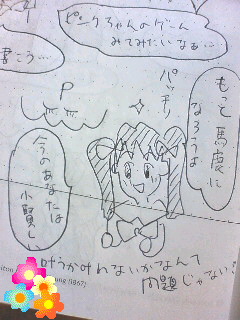 ピンクちゃんのゲーム
みてみたいなる…
書こう…
パッチリ
もっと馬鹿に
なろうよ
P
今のあなたは
小賢しい
叶うか叶わないかなんて
問題じゃない!
(1867)